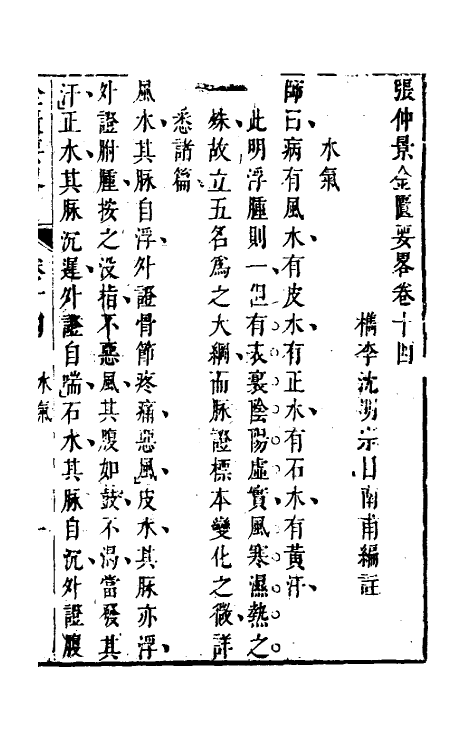 張仲景金匱要畧卷十四
檇李沈明宗目南甫編註
水氣
師曰病有風水有皮水有正水有石水有黃汗
此明浮腫則一但有表裏陰陽虛實風寒濕熱之
殊故立五名爲之大綱而脉證標本變化之微詳
悉諸篇
風水其脉自浮外證骨節疼痛惡風皮水其脉亦浮
外證胕腫按之没指不惡風其腹如鼓不渴當發其
汗正水其脉沉遲外證自喘石水其脉自沉外證腹
卷十四
水氣
一